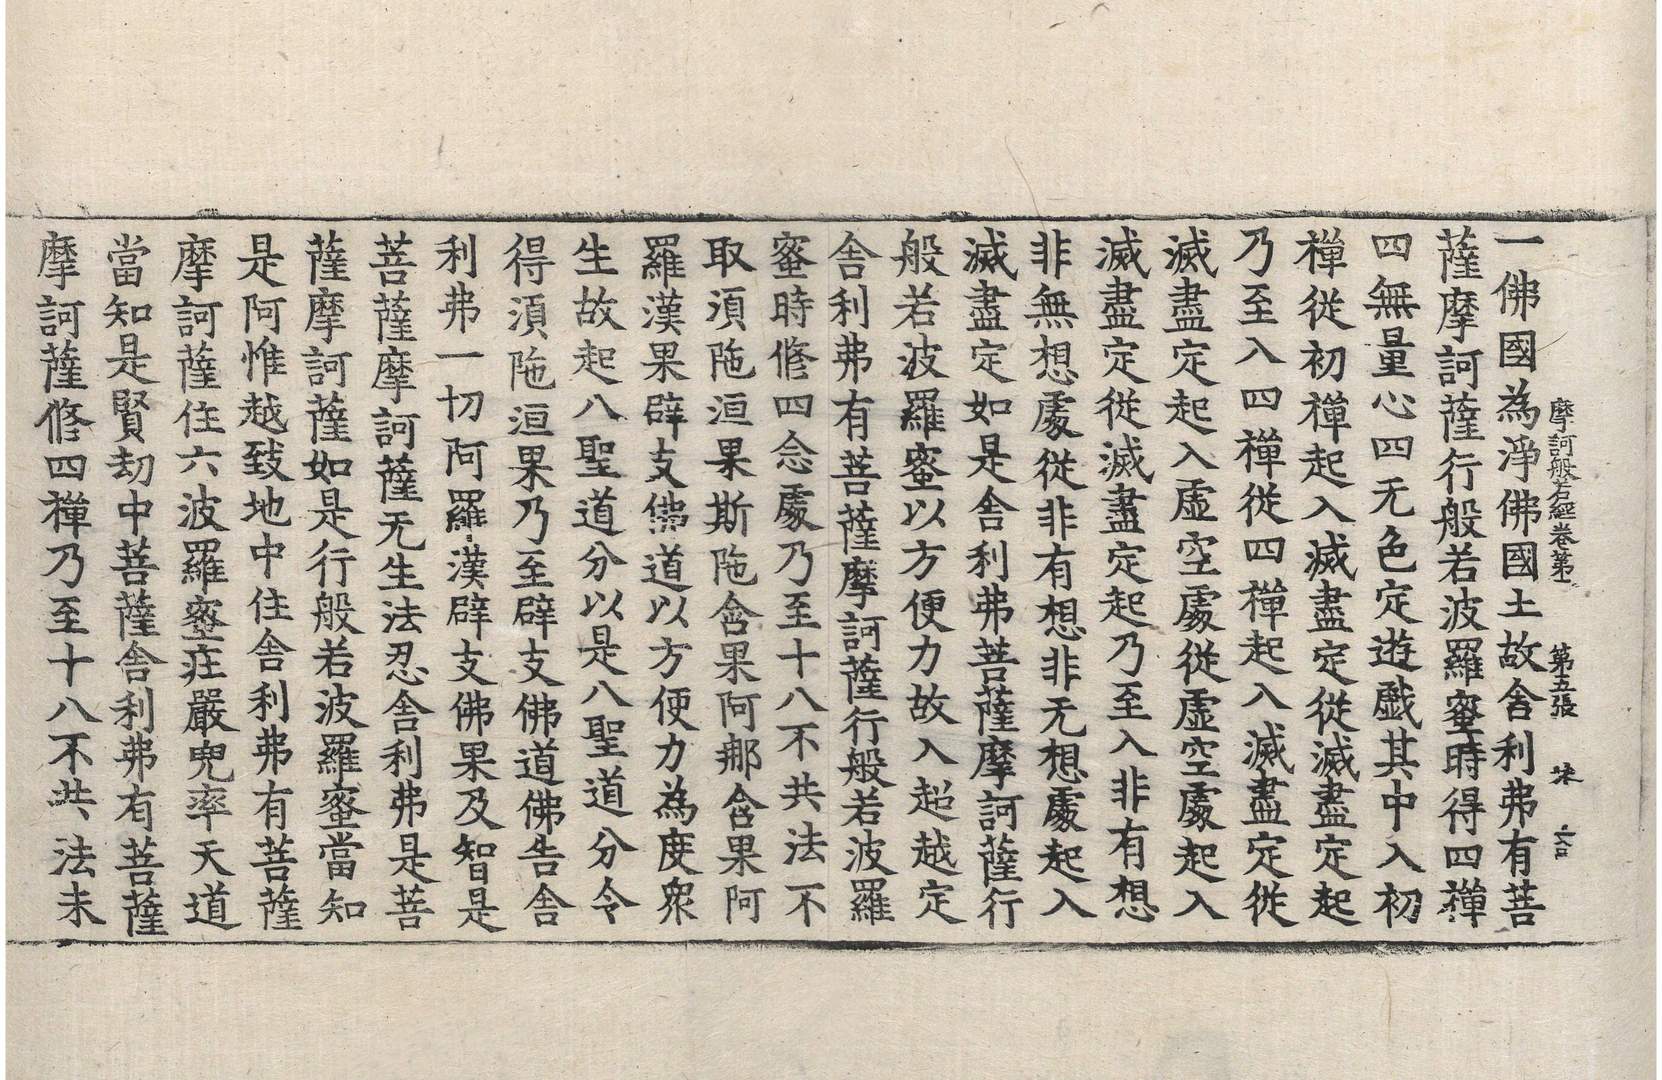 摩訶般若經卷第二 第五張 柰
一佛國為淨佛國土故舍利弗有菩
薩摩訶薩行般若波羅蜜時得四禪
四無量心四无色定遊戲其中入初
禪從初禪起入滅盡定從滅盡定起
乃至入四禪從四禪起入滅盡定從
滅盡定起入虛空處從虛空處起入
滅盡定從滅盡定起乃至入非有想
非無想處從非有想非无想處起入
滅盡定如是舍利弗菩薩摩訶薩行
般若波羅蜜以方便力故入超越定
舍利弗有菩薩摩訶薩行般若波羅
蜜時修四念處乃至十八不共法不
取須陁洹果斯陁含果阿那含果阿
羅漢果辟支佛道以方便力為度衆
生故起八聖道分以是八聖道分令
得須陁洹果乃至辟支佛道佛告舍
利弗一切阿羅漢辟支佛果及智是
菩薩摩訶薩无生法忍舍利弗是菩
薩摩訶薩如是行般若波羅蜜當知
是阿惟越致地中住舍利弗有菩薩
摩訶薩住六波羅蜜莊嚴兜率天道
當知是賢劫中菩薩舍利弗有菩薩
摩訶薩修四禪乃至十八不共法未